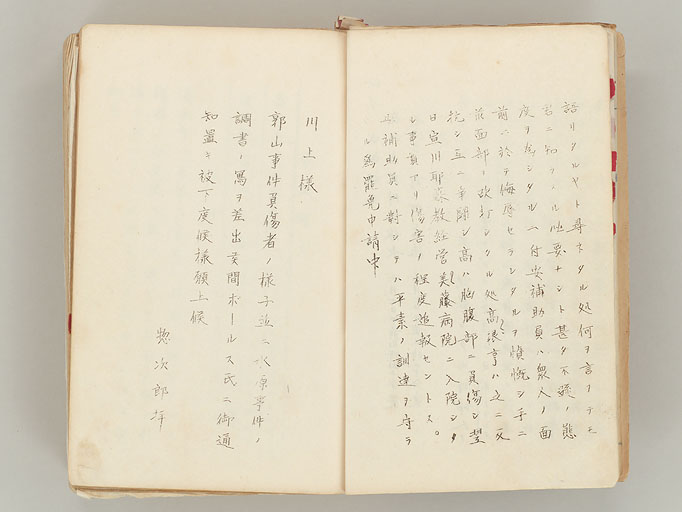 語リタルヤト尋ネタル処何ヲ言フテモ
君ニ知ラ ル必要ナシト甚タ不 ノ態
度ヲ為シタル 付安補助員ハ衆人ノ面
前ニ於テ侮辱セラレタルヲ憤慨シ手ニ
前面部ヲ殴打シタル処高 亨ハ之ニ反
抗シ互ニ争闘シ高ハ胸腹部ニ負傷シ翌
日宣川耶蘇教経営美 病院ニ入院シタ
ル事実アリ傷害ノ程度追報セントス。
補助員ニ対シテハ平素ノ訓 ヲ守ラ
ル為罷免申請中
川上様
郭山事件負傷者ノ様子並ニ 事件ノ
調書ノ寫ヲ差出 間ボールス氏ニ御通
知置キ被下度候様願上候
惣次郎拝